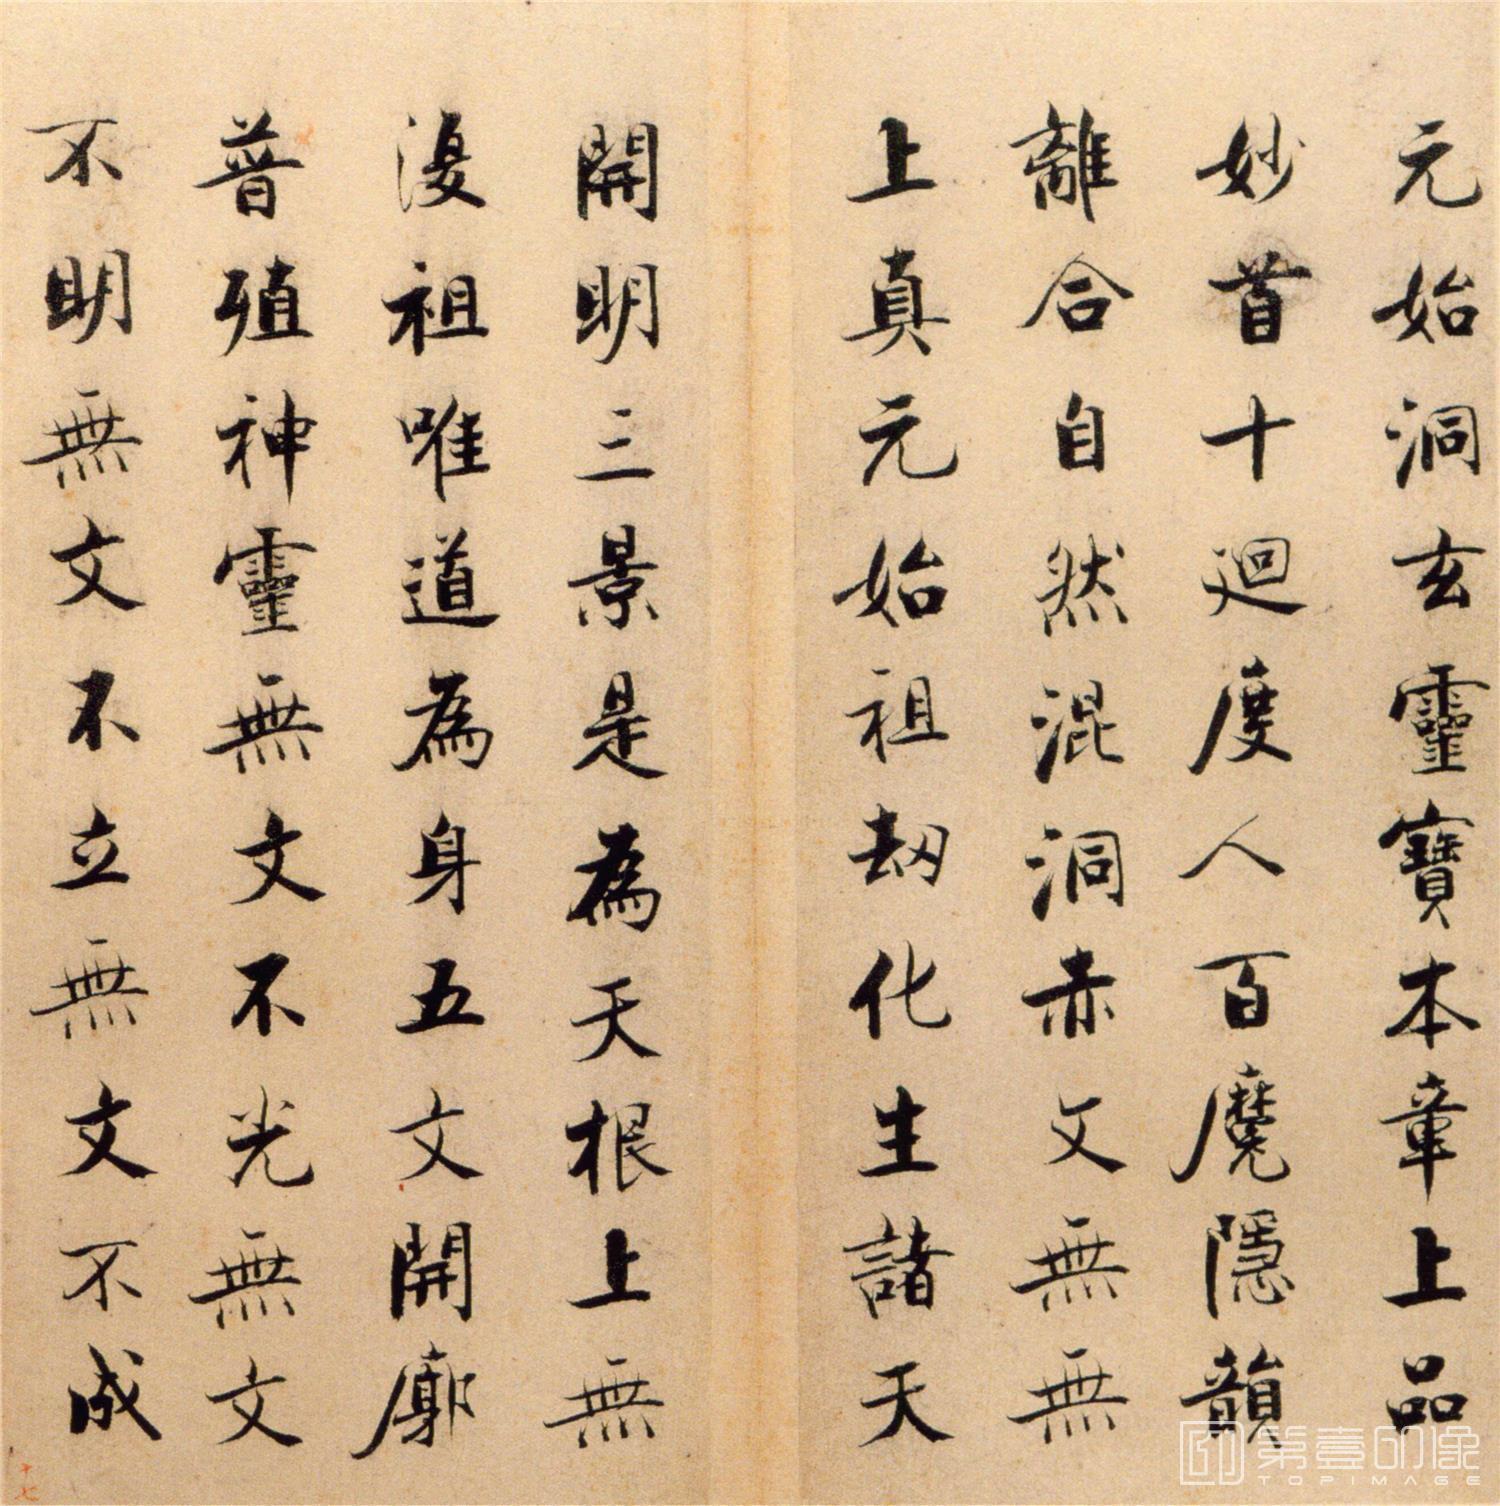 元始洞玄靈寶本章上品
妙首十迴度人百魔隱韻
離合自然混洞赤文無無
上真元始祖劫化生諸天
開明三景是為天根上無
復祖唯道為身五文開廓
普殖神靈無文不光無文
不明無文不立無文不成
十七
第壹印像
TOPIMAGE